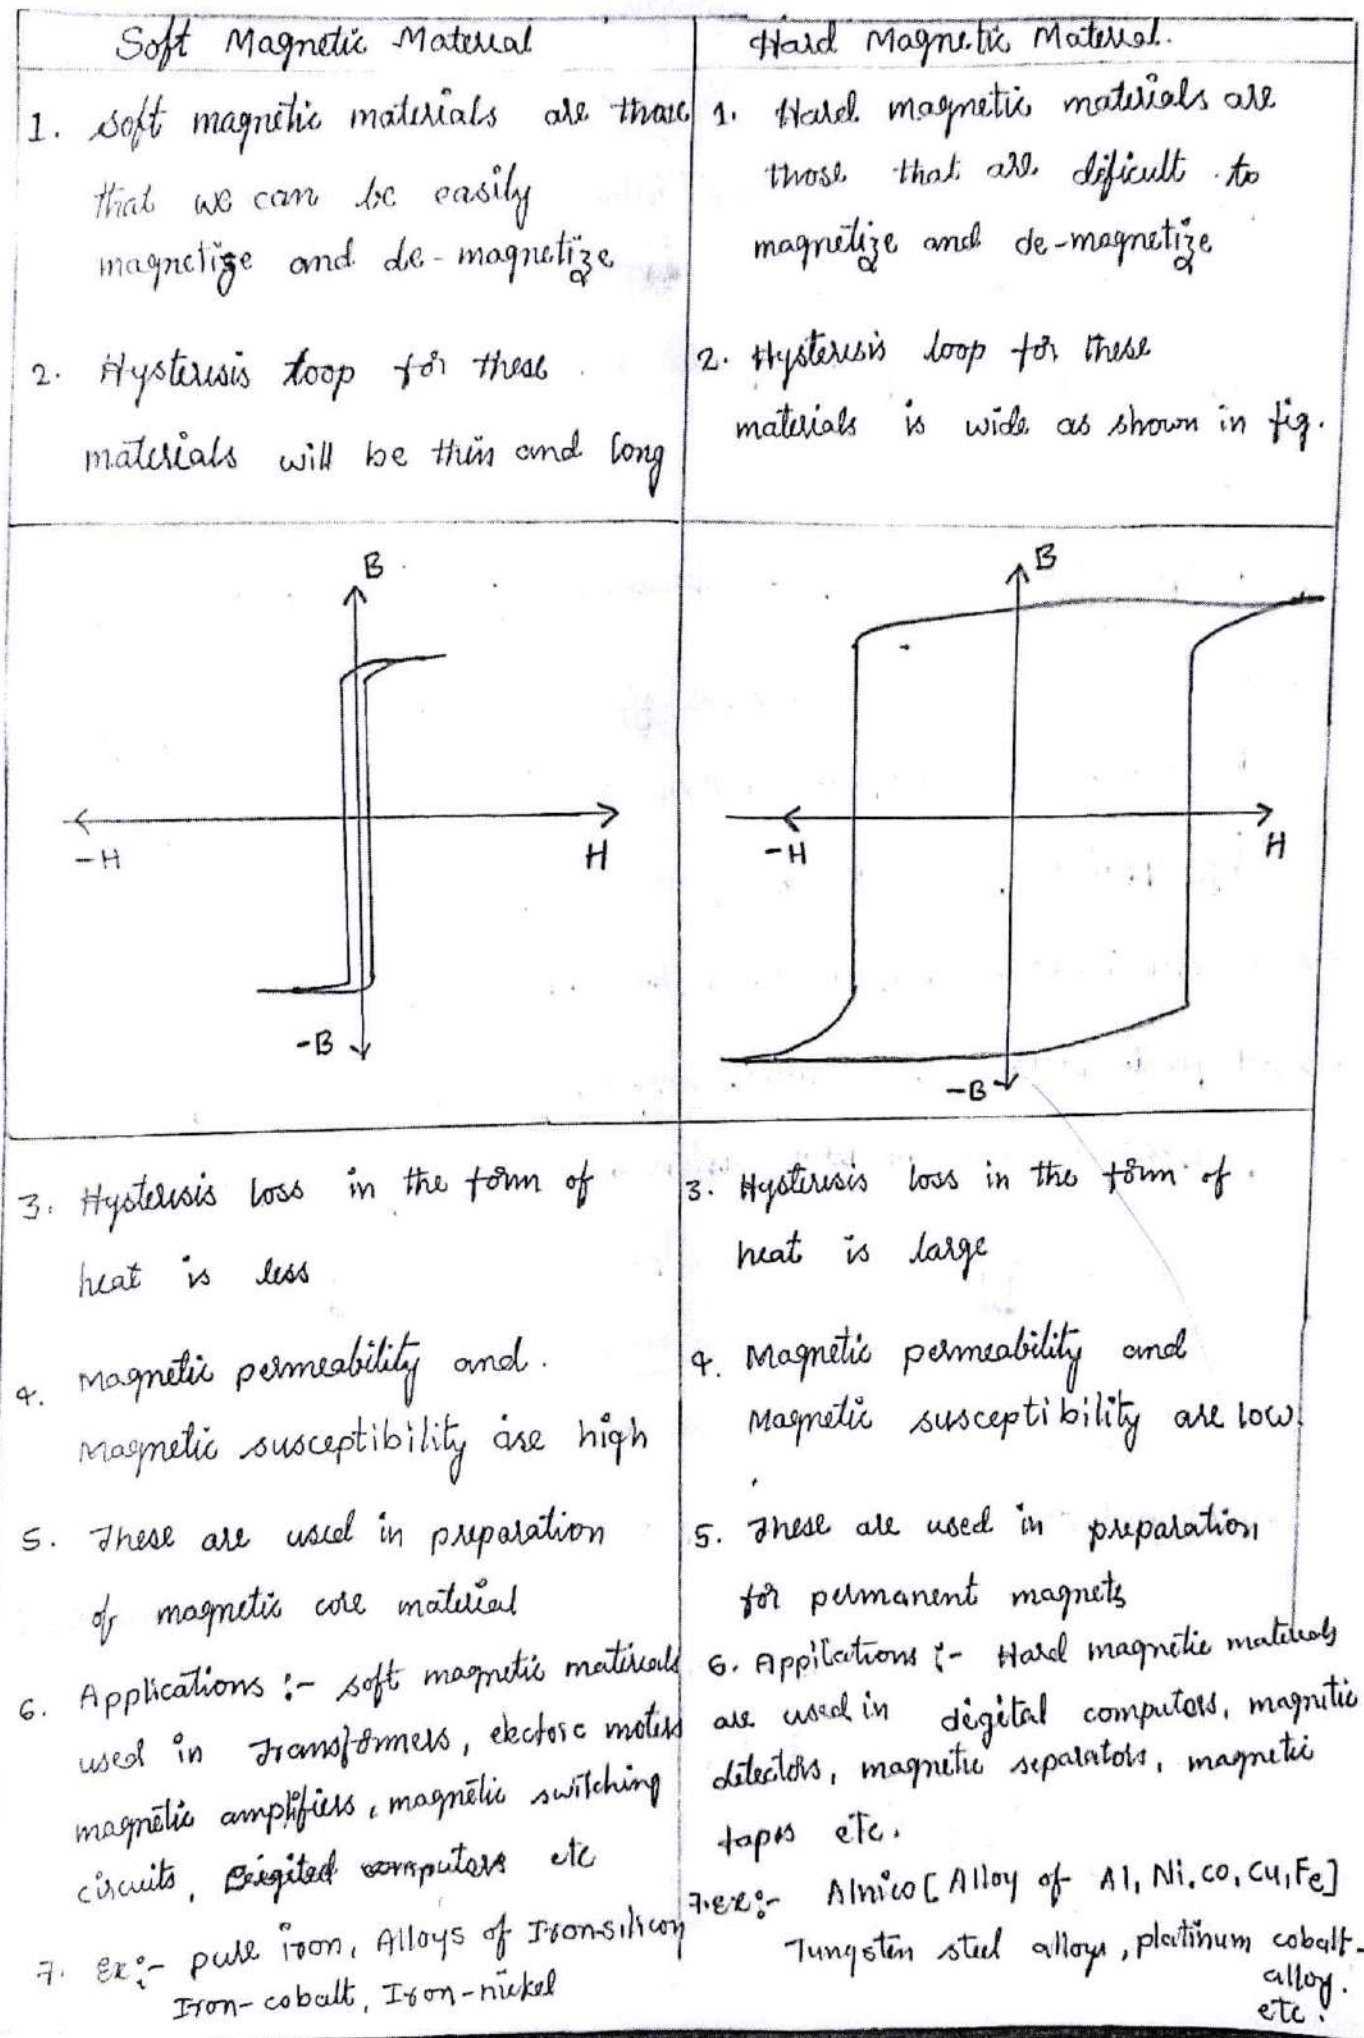 Soft Magnetic Material
1. soft magnetic materials are those
that we can be easily
magnetize and de-magnetize
2. Hysteresis loop for these
materials will be thin and long
B
-H
H
-B
3. Hysteresis loss in the form of
heat is less
4. Magnetic permeability and
Magnetic susceptibility are high
5. These are used in preparation
of magnetic core material
6. Applications :- soft magnetic materials
used in Transformers, electoric moters
magnetic amplifiers, magnetic switching
circuits, Deigited computers etc
7. Ex:- pure iron, Alloys of Iron-silicon
Iron-cobalt, Iron-nickel
Hard Magnetic Material.
1. Hard magnetic materials are
those that are dificult to
magnetize and de-magnetize
2. Hysteresis loop for these
materials is wide as shown in fig.
B
-H
H
-B
3. Hysteresis loss in the form of
heat is large
4. Magnetic permeability and
Magnetic susceptibility are low.
5. These are used in preparation
for permanent magnets
6. Applications :- Hard magnetic materials
are used in digital computers, magnetic
detectors, magnetic separators, magnetic
tapes etc.
7. Ex:- Alnico [Alloy of Al, Ni, co, Cu, Fe]
Tungsten steel alloys, platinum cobalt-
alloy.
etc.